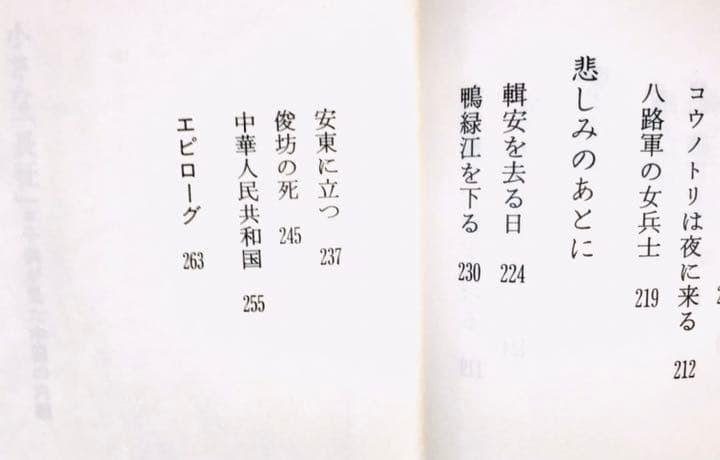 コウノトリは夜に来る 212
八路軍の女兵士 219
悲しみのあとに
輯安を去る日 224
鴨緑江を下る 230
安東に立つ 237
俊坊の死 245
中華人民共和国 255
エピローグ 263